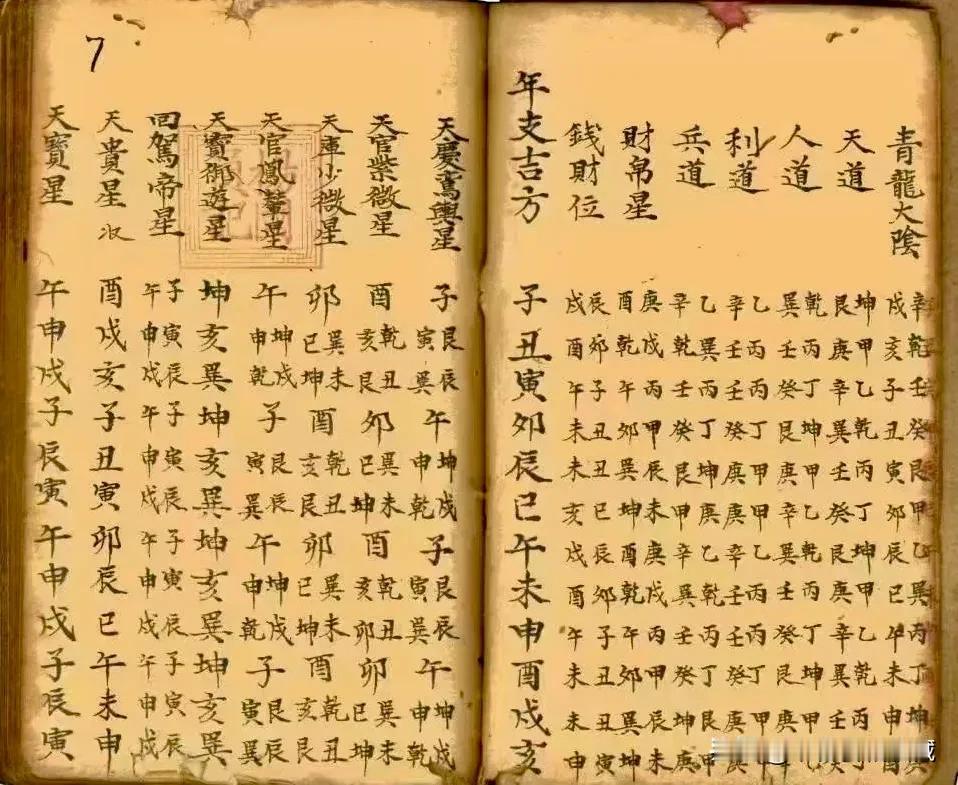 青龍大陰 辛戌 乾亥 壬子 癸丑 艮寅 甲卯 乙辰 巽巳 丙午 丁未 坤申
天道 坤艮 甲庚 乙辛 乾巽 丙壬 丁癸 坤艮 甲庚 乙辛 乾巽 丙壬 丁
人道 乾巽 丙壬 丁癸 坤艮 甲庚 乙辛 乾巽 丙壬 丁癸 坤艮 甲庚
利道 乙辛 丙壬 丙壬 丁癸 甲庚 甲庚 乙辛 丙壬 丙壬 丁癸 甲庚
兵道 乙辛 巽乾 丙壬 丁癸 坤艮 庚甲 乙辛 乾巽 丙壬 丁癸 艮坤 甲庚
財帛星 庚酉 戌乾 丙午 甲卯 辰巽 未坤 庚酉 戌乾 丙午 甲卯 辰巽 未坤
錢財位 辰戌 卯酉 子午 丑未 丑未 巳亥 辰戌 卯酉 子午 丑未 丑未 寅申
年支吉方 子 丑 寅 卯 辰 巳 午 未 申 酉 戌 亥
天慶鸞輿星 子 艮寅 辰巽 午 坤申 戌乾 子 艮寅 辰巽 午 坤申 戌乾
天官紫微星 酉 乾亥 丑艮 卯 巽巳 未坤 酉 乾亥 丑卯 卯 巽巳 未坤
天庫小微星 卯 巽巳 未坤 酉 乾亥 丑艮 卯 巽巳 未坤 酉 乾亥 丑艮
天官鳳輦星 午 坤申 戌乾 子 艮寅 辰巽 午 坤申 戌乾 子 艮寅 辰巽
天寶御遊星 坤 亥 巽 坤 亥 巽 坤 亥 巽 坤 亥 巽
回駕帝星 子午 寅申 辰戌 子午 寅申 辰戌 子午 寅申 辰戌 子午 寅申 辰戌
天貴星 酉 戌 亥 子 丑 寅 卯 辰 巳 午 未 申
天寶星 午 申 戌 子 辰 寅 午 申 戌 子 辰 寅
7